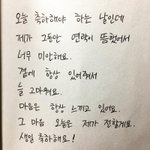 오늘 축하해야 하는 날인데
제가 그동안 연락이 뜸했어서
너무 미안해요.
곁에 항상 있어줘서
늘 고마워요.
마음은 항상 느끼고 있어요.
그 마음 오늘은 제가 전할게요.
생일 축하해요!